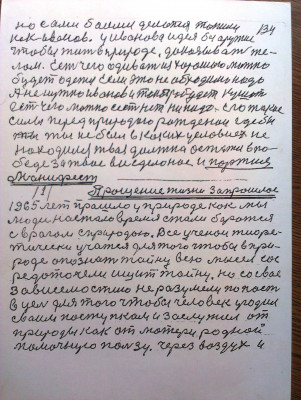 134
но сами болши делатся таким
как иванов. у иванова идея большая
чтобы жить в природе, доказывать де-
лом. Есть чего одивать хорошо можно
будет одети если это не обходимо надо
А не нужно иванов тоже будет кушат
Есть чего можно есть нет ни надо. его такие
силы перед природой рожденая где бы
ты ты не был в каких условиях не
находился твая должна остатся по
беде за твое сделоное и партия
Манифест
Прощение жизни за прошлое
1965 лет прашло у природе как мы
люди настало время стали боротся
с врагом с природою. Все ученои теоре-
тически учатся для того чтобы в при-
роде опознат тайну всю мысел сос
редоточели ищут тайну, но со свое
зависемостию не разумели попост
в цел для того чтобы человек угодил
своим поступкам и заслужил от
природы как от матери родной
помочную ползу. через воздух и